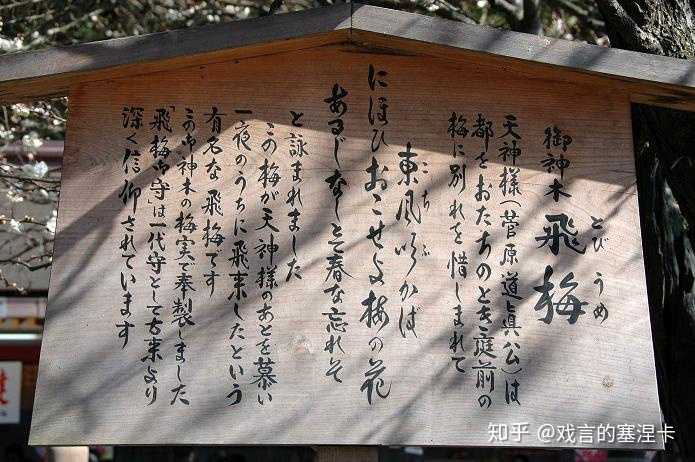 御神木 飛梅
とび うめ
天神様(菅原道眞公)は
都をおたちのとき庭前の
梅に別れを惜しまれて
東風吹かば
こち ふ
にほひおこせよ梅の花
あるじなしとて春な忘れそ
と詠まれました
この梅が天神様のあとを慕い
一夜のうちに飛来したという
有名な飛梅です
この御神木の梅実で奉製しました
「飛梅御守」は一代守として古来より
深く信仰されています
知乎 @戏言的塞涅卡